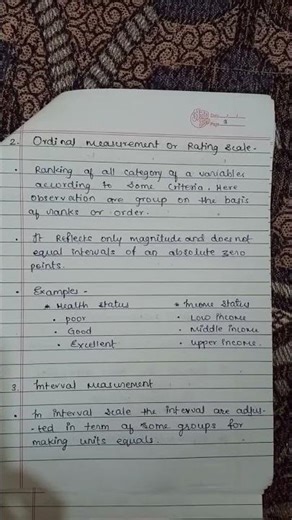 Date
Page 8
2. Ordinal measurement or Rating scale -
• Ranking of all category of a variables
according to some criteria. Here
observation are group on the basis
of ranks or order.
• It Reflects only magnitude and does not
equal intervals of an absolute zero
points.
• Examples -
* Health status * Income status
• poor • Low income
• Good • Middle income
• Excellent • upper income.
3. Interval measurement
• In interval scale the interval are adju-
-ted in term of some groups for
making units equals.